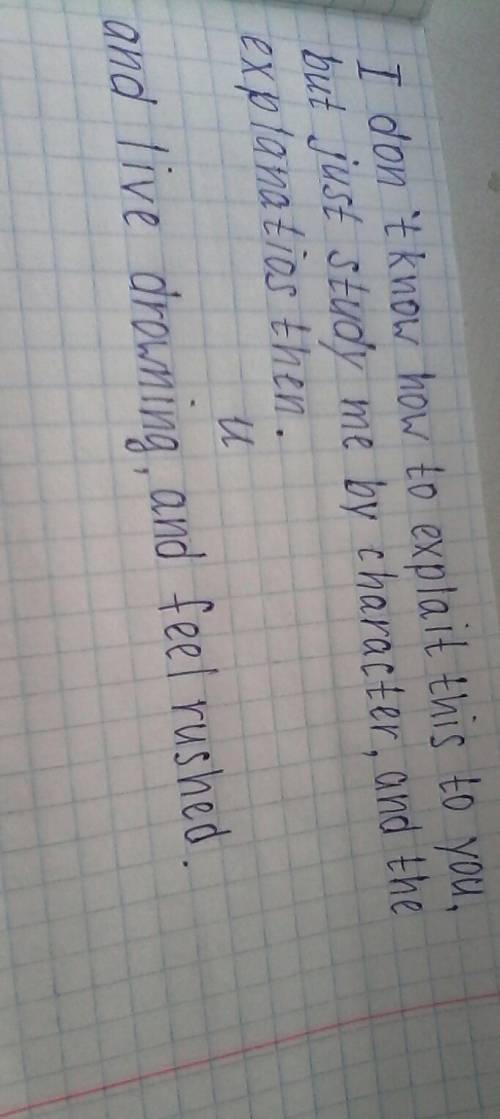 I don't know how to explait this to you,
but just study me by character, and the
explanatios then.
и
and live drowning, and feel rushed.